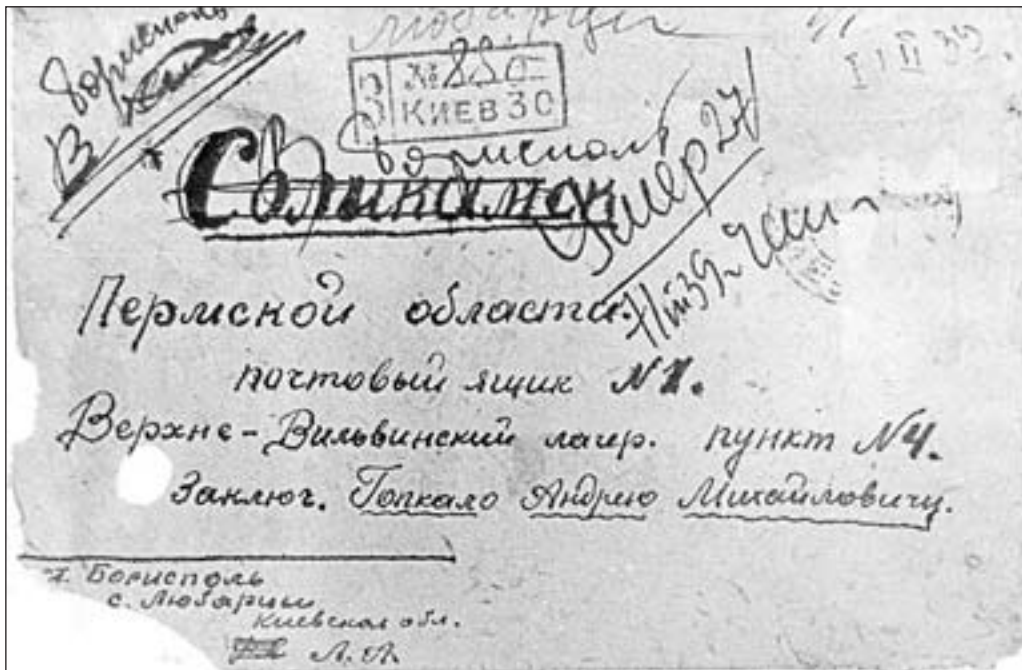 Борисполь
В
Любарцы
I I II 39.
З № 850
КИЕВ 30
Борисполь
Соликамск
Умер 27/
III 39 г.
Пермской области.
почтовый ящик №1.
Верхне-Вильвинский лагр. пункт №4.
Заключ. Гопкало Андрею Михайловичу.
ст. Борисполь
с. Любарцы
Киевская обл.
Л. Л.